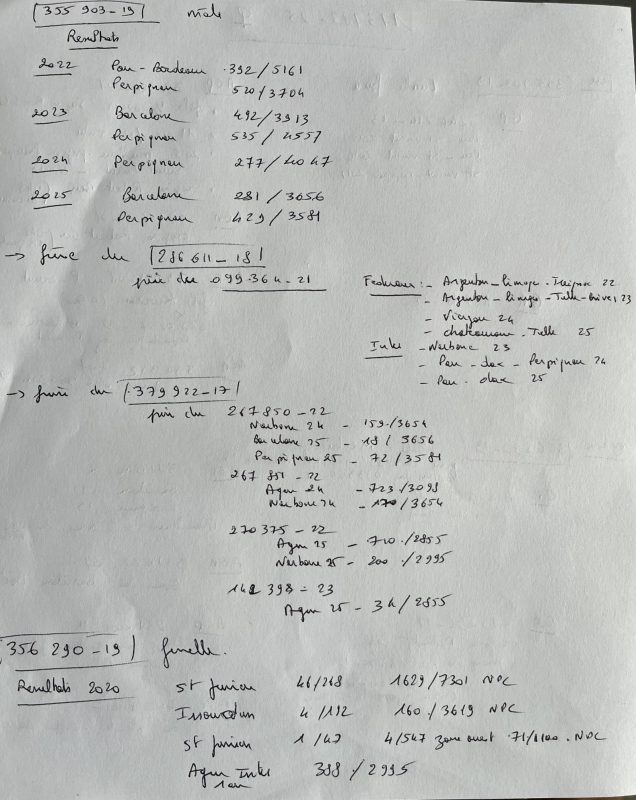 355 903-19 male
Resultats
2022 Pau-Bordeaux 392/5161
Perpignan 520/3704
2023 Barcelone 492/3913
Perpignan 535/4557
2024 Perpignan 277/4047
2025 Barcelone 281/3656
Perpignan 429/3581
→ frère du 286 611-18
père du 099.364-21
Federaux :- Argenton-limoge- 22
- Argenton-limoge-Tulle-Brive, 23
- Vierzon 24
- chateauroux. Tulle 25
Inter - Narbonne 23
- Pau-dax-Perpignan 24
- Pau. dax 25
→ frère du 379 922-17
père du 267 850-22
Narbonne 24 - 159/3654
Barcelone 25 - 181 3656
Perpignan 25 - 72/3581
267 851-22
Agen 24 - 723/3098
Narbonne 24 - 170/3654
270 375-22
Agen 25 - 710/2855
Narbonne 25 - 200/2995
142 398-23
Agen 25 - 34/2855
356 290-19 femelle.
Resultats 2020 St Junien 46/268 1629/7301 NPC
Issoudun 4/132 160/3619 NPC
St Junien 1/47 4/547 zone ouest .71/1100. NPC
Agen Inter 388/2995
1an